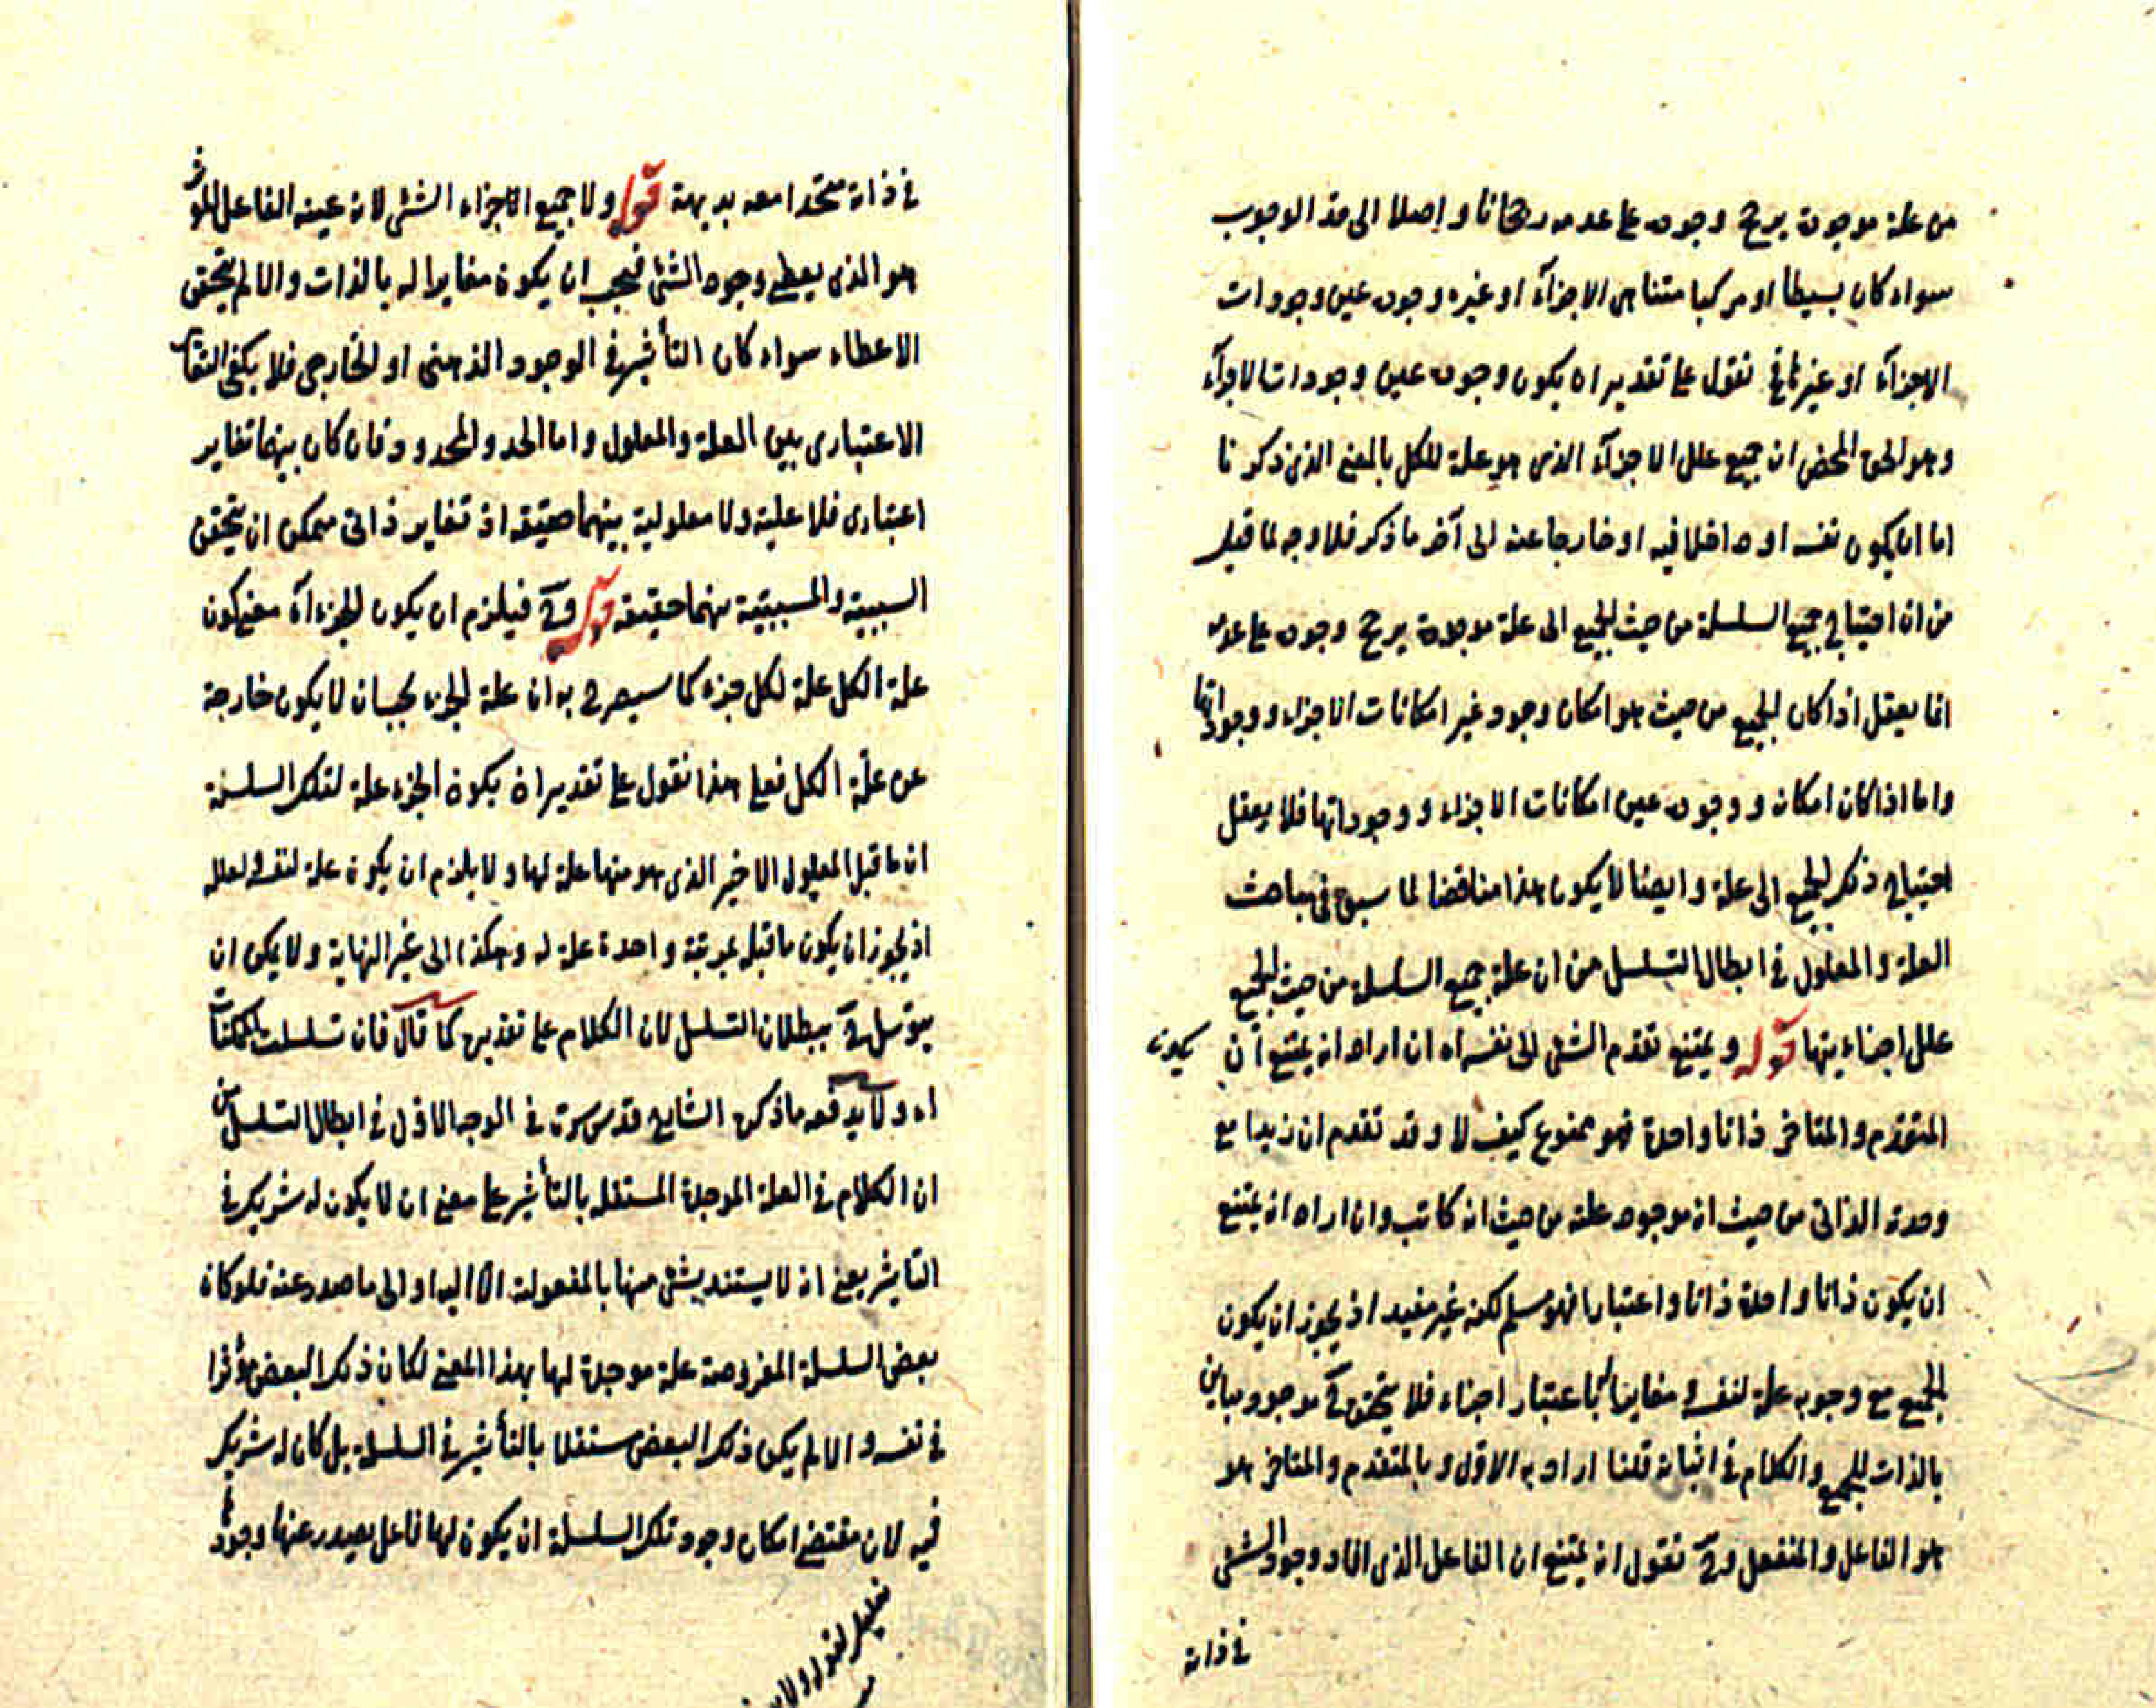 من علة موجودة يرجح وجوده على عدمه رجحانا واصلا الى حد الوجوب
سواء كان بسيطا او مركبا متناهى الاجزآء او غيره وجوده عين وجودات
الاجزآء او غيرها فح نقول على تقدير ان يكون وجوده عين وجودات الاجزآء
وهو الحق المحض ان جميع علل الاجزآء الذى هو علة للكل بالمعنى الذى ذكرنا
اما ان يكون نفسه او داخلا فيه او خارجا عنه الى آخر ما ذكر فلا وجه لما قيل
من ان احتياج جميع السلسلة من حيث الجميع الى علة موجودة يرجح وجوده على عدمه
انما يعقل اذا كان للجميع من حيث هو امكان وجود غير امكانات الاجزاء ووجوداتها
واما اذا كان امكانه ووجوده عين امكانات الاجزاء ووجوداتها فلا يعقل
احتياج ذلك الجميع الى علة وايضا لا يكون هذا مناقضا لما سبق فى مباحث
العلة والمعلول فى ابطال التسلسل من ان علة جميع السلسلة من حيث الجميع
علل اجزاءيتها قوله ويمتنع تقدم الشئ الى نفسه اه ان اراد انه يمتنع ان يكون
المتقدم والمتاخر ذاتا واحدة فهو ممنوع كيف لا وقد تقدم ان زيدا مع
وحدته الذاتى من حيث انه موجود علته من حيث انه كاتب وان اراد انه يمتنع
ان يكون ذاتا واحدة ذاتا واعتبارا فهو مسلم لكنه غير مفيد اذ يجوز ان يكون
الجميع مع وجوبه علة لنفسه مغايرا باعتبار اجزاء فلا يتحقق ح موجود مباين
بالذات للجميع والكلام فى اثباته قلنا اراد به الاول وبالمتقدم والمتاخر هو
هو الفاعل والمنفعل وح نقول انه يمتنع ان الفاعل الذى افاد وجود الشئ
فى ذاته
فى ذاته متحدا معه بديهة قوله ولا جميع الاجزاء الشئ لانه عينه الفاعل المؤثر
هو الذى يعطى وجود الشئ فيجب ان يكون مغايرا له بالذات والا لم يتحقق
الاعطاء سواء كان التأثير فى الوجود الذهنى او الخارجى فلا يكفى التغاير
الاعتبارى بين العلة والمعلول واما الحد والمحدود فان كان بينهما تغاير
اعتبارى فلا علية ولا معلولية بينهما حقيقة اذ تغاير ذاتى ممكن ان يتحقق
السببية والمسببية بينهما حقيقة قوله وح فيلزم ان يكون الجزء آه معنى كون
علة الكل علة لكل جزء كما سيصرح به ان علة الجزء يجب ان لا يكون خارجة
عن علة الكل فعلى هذا نقول على تقدير ان يكون الجزء علة لتلك السلسلة
ان ما قبل المعلول الاخير الذى هو منها علة لها ولا يلزم ان يكون علة لنفسه ولعلله
اذ يجوز ان يكون ما قبله بمرتبة واحدة علة له وهكذا الى غير النهاية ولا يمكن ان
يتوسل ح ببطلان التسلسل لان الكلام على تقديره كما قال فان تسلسلت الممكنات
اه ولا يدفعه ما ذكره الشارح قدس سره فى الوجه الاول فى ابطال التسلسل من
ان الكلام فى العلة الموجدة المستقلة بالتأثير على معنى ان لا يكون له شريك فى
التاثير يعنى انه لا يستند شئ منها بالمفعولية الا اليه او الى ما صدر عنه فلو كان
بعض السلسلة المفروضة علة موجدة لها بهذا المعنى لكان ذلك البعض مؤثرا
فى نفسه والا لم يكن ذلك البعض مستقلا بالتأثير فى السلسلة بل كان له شريك
فيه لان مقتضى امكان وجود تلك السلسلة ان يكون لها فاعل يصدر عنها وجودها
تعليل لقوله ولا